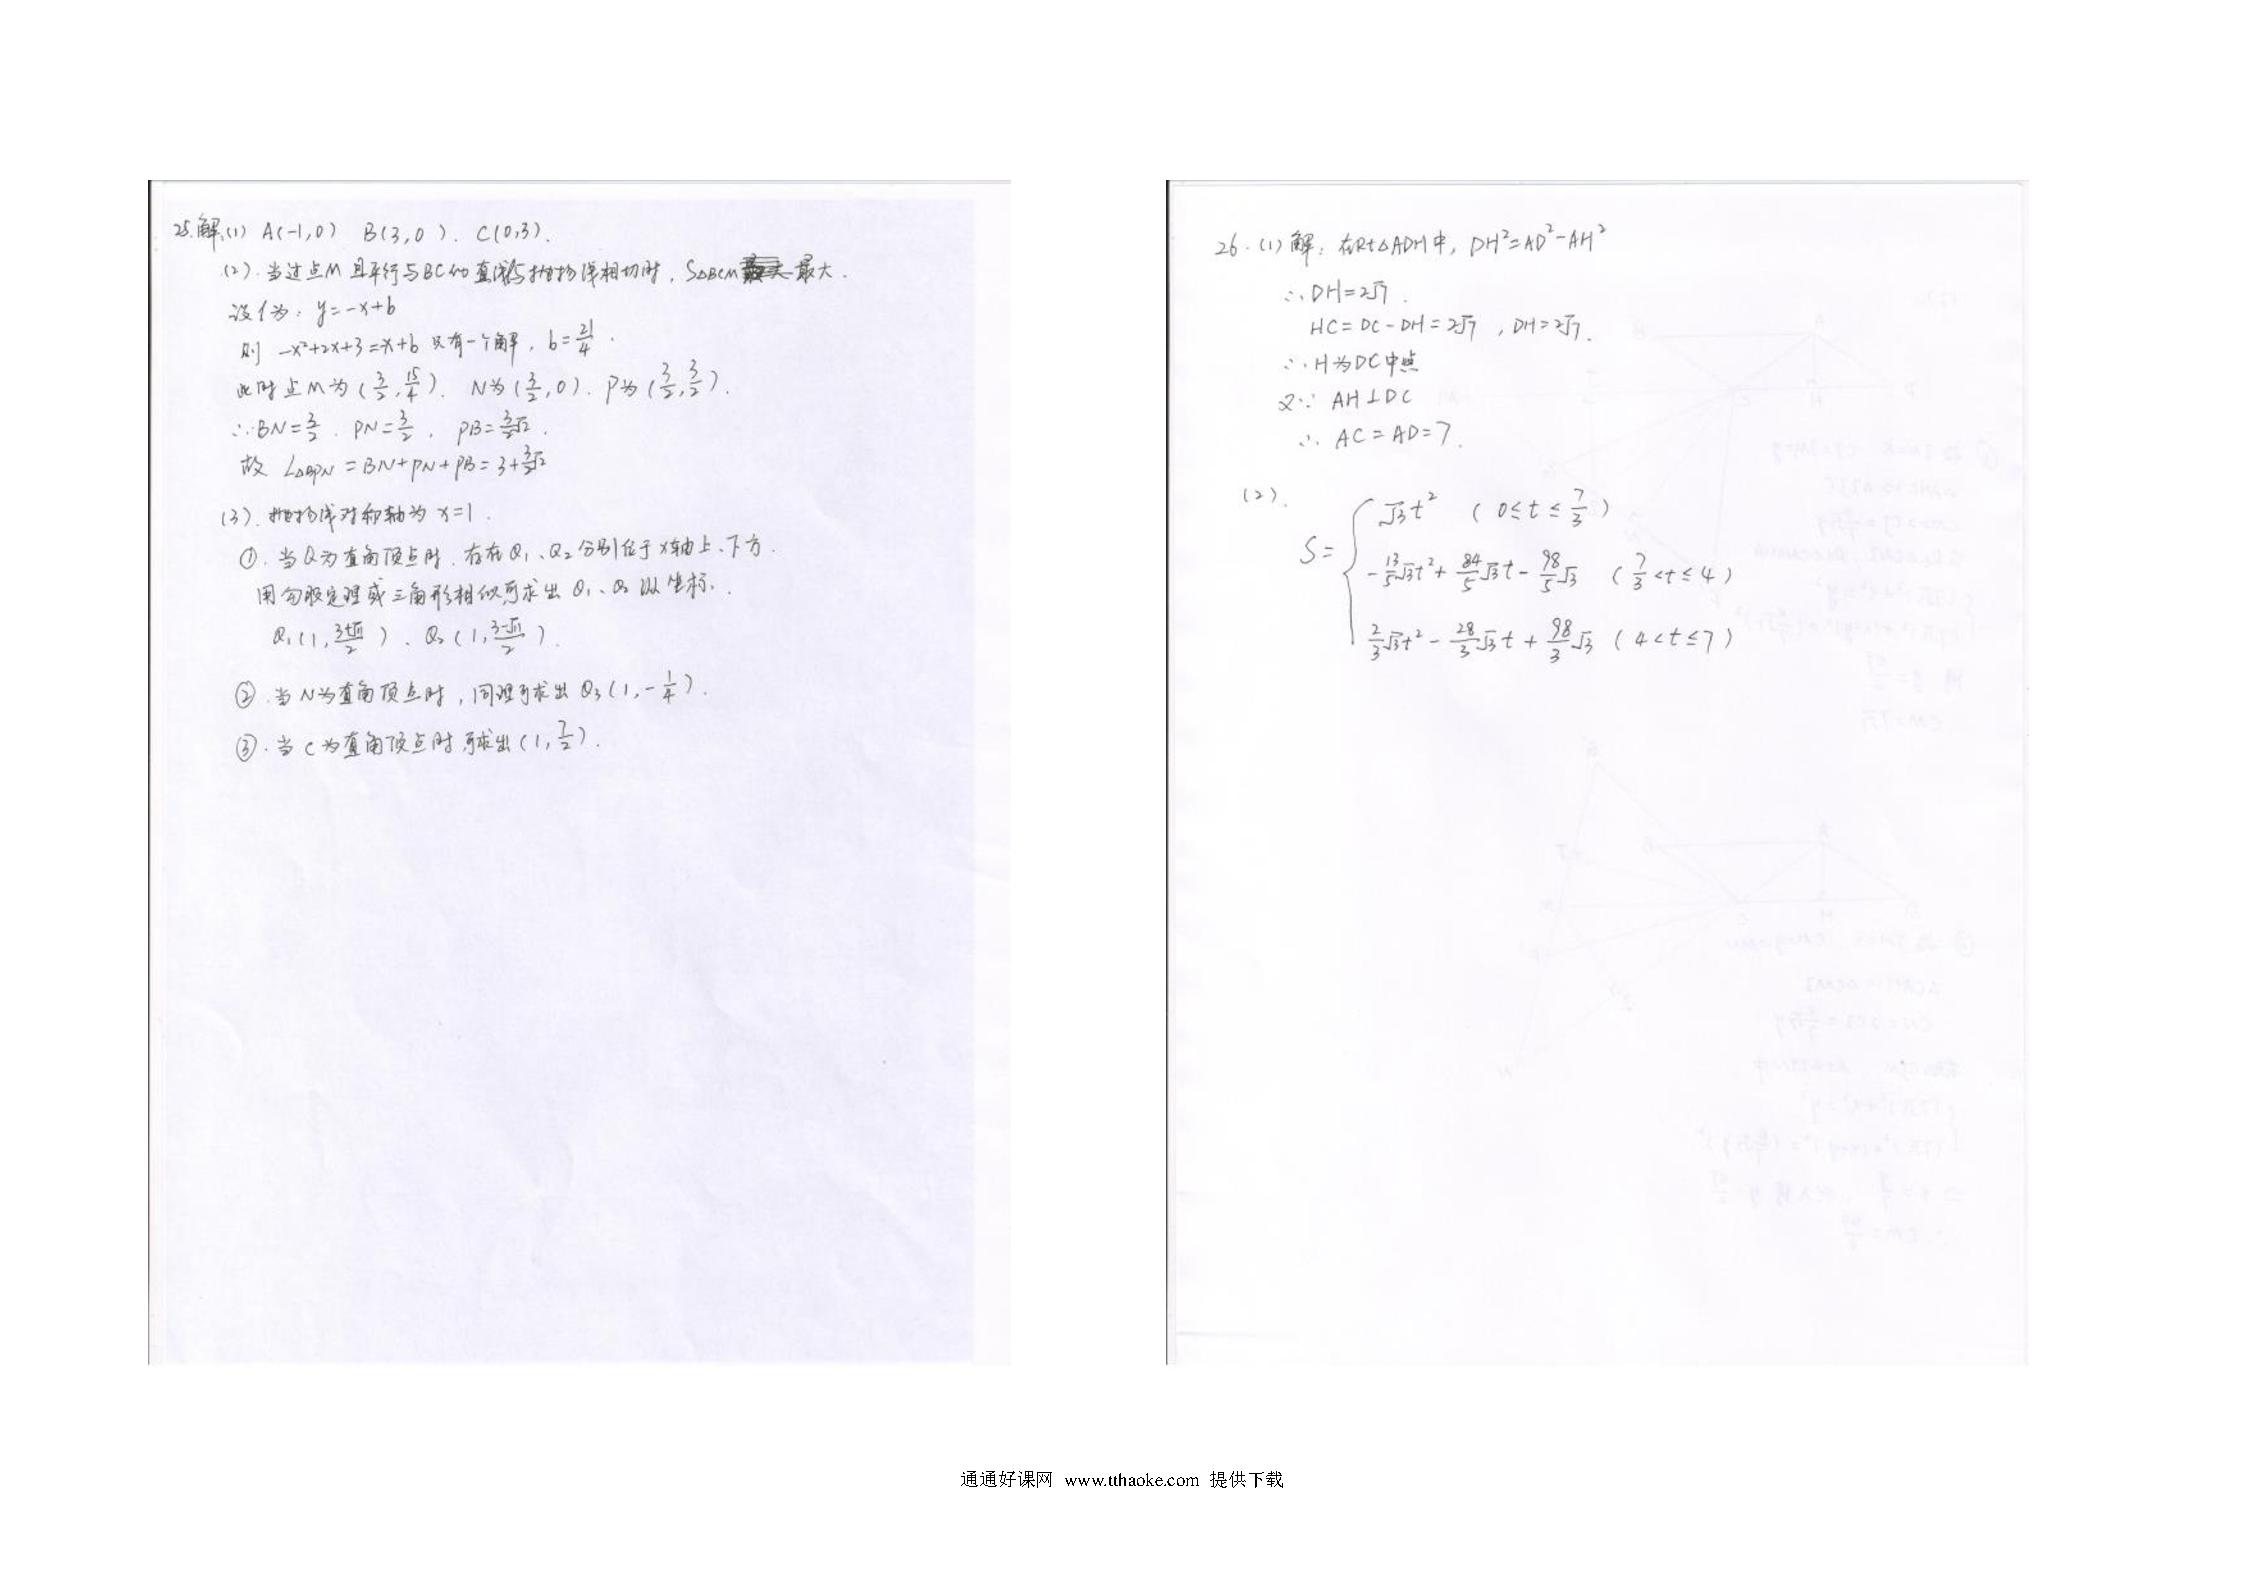 25.解:(1) A(-1,0) B(3,0). C(0,3).
(2).当过点M且平行与BC的直线与抛物线相切时,S△BCM最大.
设l为: y=-x+b
则 -x²+2x+3=-x+b 只有一个解, b=21/4.
此时点M为(3/2,15/4). N为(3/2,0). P为(3/2,3/2).
∴BN=3/2. PN=3/2. PB=3/2√2.
故 L△BPN=BN+PN+PB=3+3/2√2
(3).抛物线对称轴为x=1.
①.当Q为直角顶点时.存在Q₁、Q₂分别位于x轴上、下方.
用勾股定理或三角形相似可求出Q₁、Q₂的坐标.
Q₁(1,(3+√11)/2)、Q₂(1,(3-√11)/2).
②.当N为直角顶点时,同理可求出Q₃(1,-1/4).
③.当C为直角顶点时可求出(1,7/2).
26.(1)解:在Rt△ADH中, DH²=AD²-AH²
∴DH=2√7.
HC=DC-DH=2√7, DH=2√7.
∴H为DC中点
又∵AH⊥DC
∴AC=AD=7.
(2).
S={ √3t² (0≤t≤7/3)
-13/5√3t²+84/5√3t-98/5√3 (7/3<t≤4)
2/3√3t²-28/3√3t+98/3√3 (4<t≤7)
通通好课网 www.tthaoke.com 提供下载